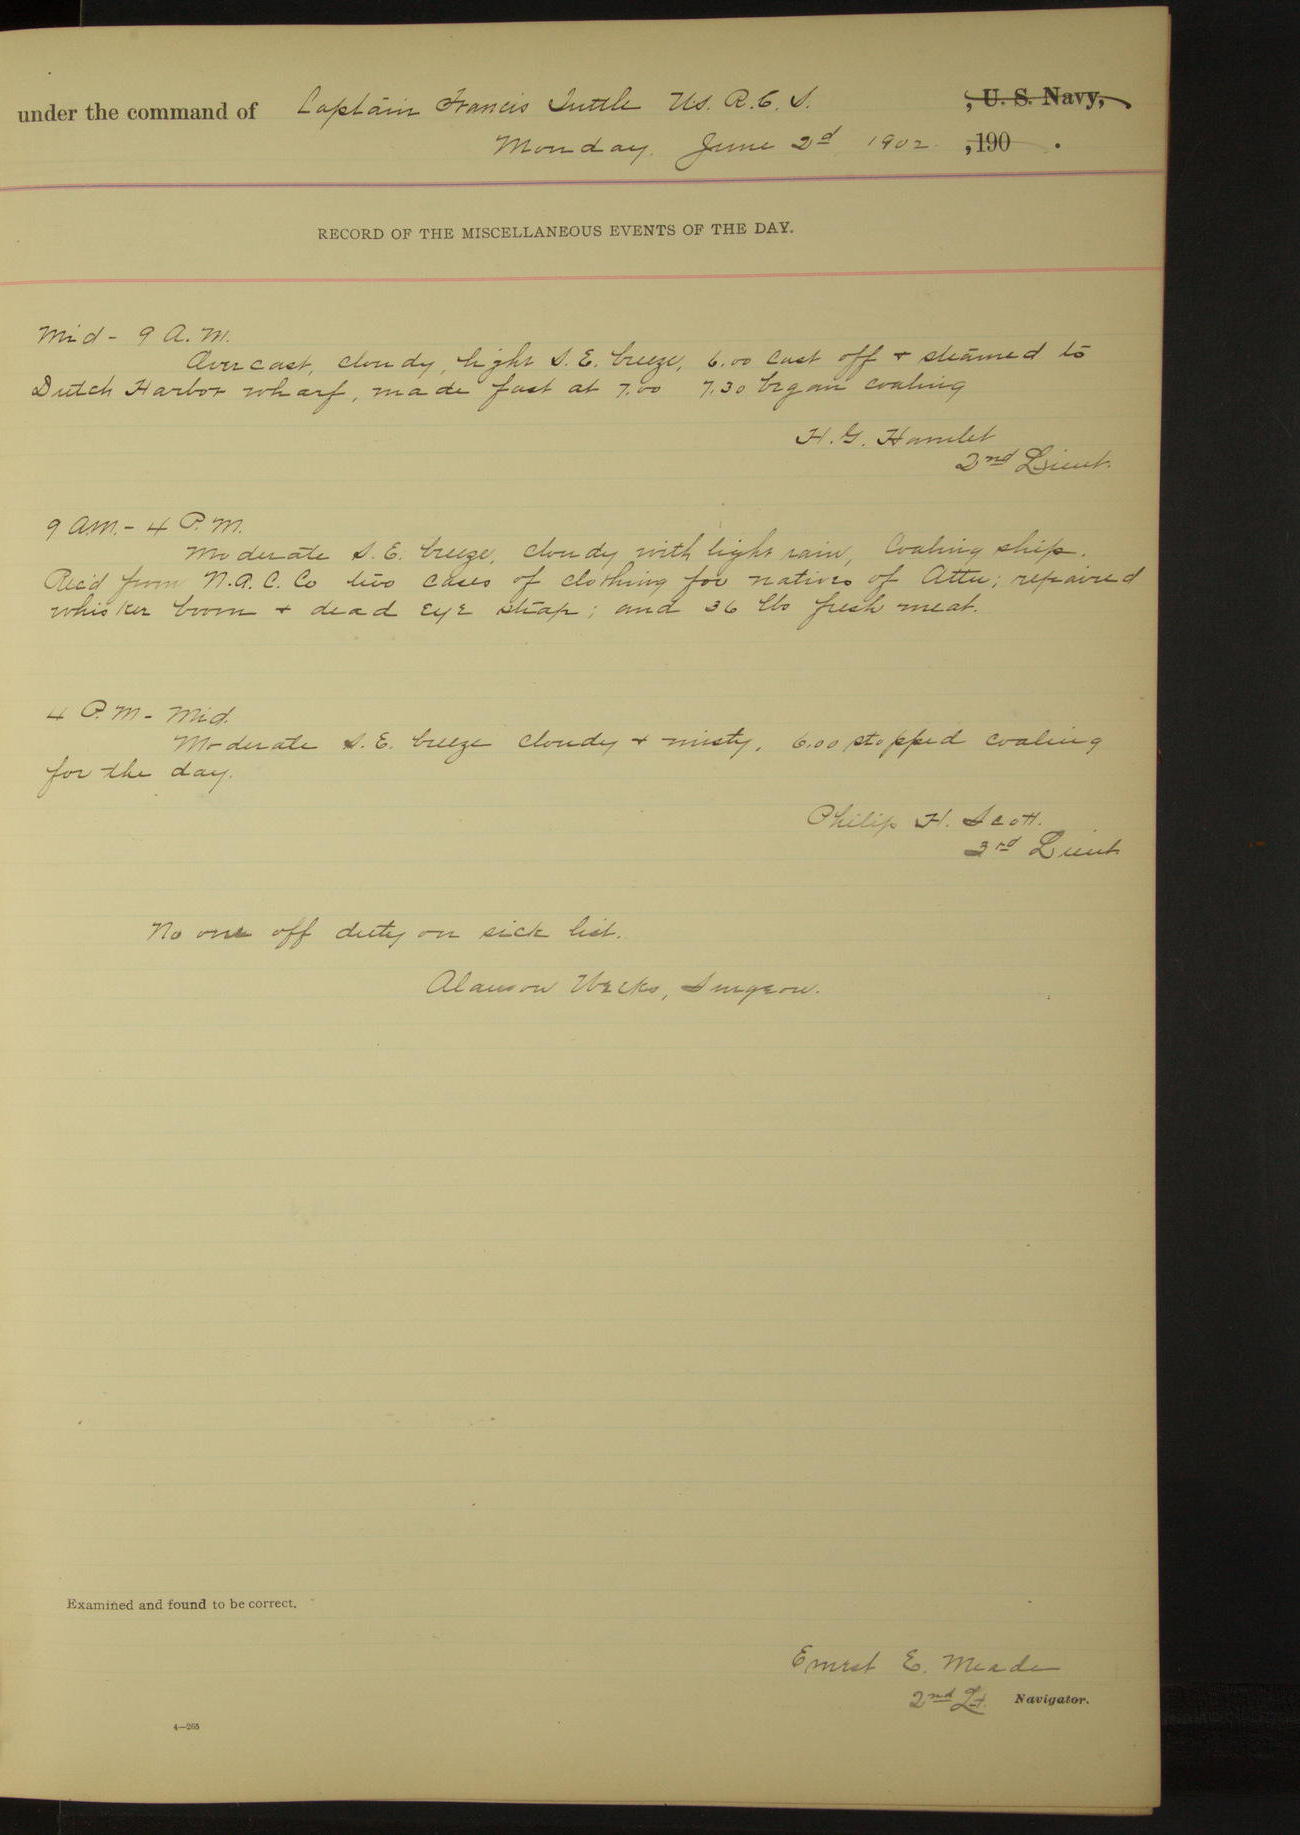 under the command of Captain Francis Tuttle U.S. R.C.S. , U. S. Navy,
Monday June 2nd 1902 , 190 .
RECORD OF THE MISCELLANEOUS EVENTS OF THE DAY.
Mid - 9 A.M.
Overcast, cloudy, light S.E. breeze, 6.00 cast off + steamed to
Dutch Harbor wharf, made fast at 7.00 7.30 began coaling
H. G. Hamlet
2nd Lieut.
9 A.M. - 4 P.M.
Moderate S.E. breeze, cloudy with light rain, Coaling ship.
Rec'd from N.A.C. Co two cases of clothing for natives of Attu; repaired
whisker boom + dead eye strap; and 36 lbs fresh meat.
4 P.M - Mid.
Moderate S.E. breeze cloudy + misty. 6.00 stopped coaling
for the day.
Philip H. Scott.
3rd Lieut
No one off duty on sick list.
Alanson Weeks, Surgeon.
Examined and found to be correct.
Ernest E. Meade
2nd Lt. Navigator.
4—265